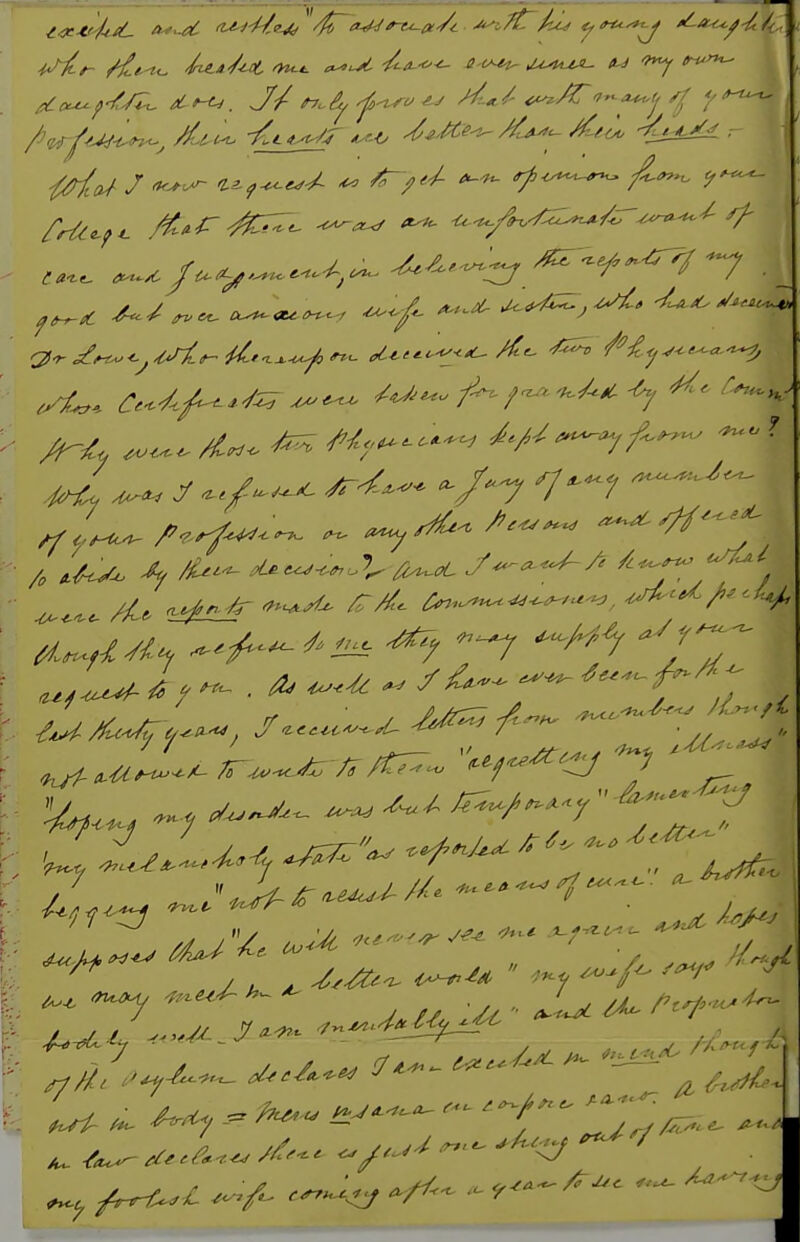 excited and restless "to associate with his young daughter
who then hated me and have ever since as my own
daughter does. It only proves that with many of your
Profession, their hearts are better than their heads -
What I now request is to get an opinion from your
College that there was an unfortunate want of
care and judgement, in believing the reports of my
good but over anxious wife and sister, who had
Dr Lowe, who thereupon deceived the two Physicians,
whose Certificates were taken for granted by the
Why were those two Physicians kept away from me?
Why was I refused to have a Jury of any number
of your Profession or any other Persons and offered
to abide by their decision? And I want to know what
were the reports made to the Commissioners, which perhaps
though they refuse to me they may supply at your
request to you. As well as I have ever been for the
last thirty years, I received letters from numbers though
not allowed to write to them "regretting my illness"
"hoping my disorder was but temporary" lamenting
"my melancholy state" as reported to be no better"
begging me "not to resist the means of cure". a brother
supposes that "he will never see me again and hopes
we may meet in a better world" my wife says though
bodily well I am mentally ill" and the Proprietor
of the Asylum declares I am excited in mind though
not in body = Mens insana in corpore sano. A brother
in law declares there is just one thing out of tune and
my foolish wife coming after a year to see me having